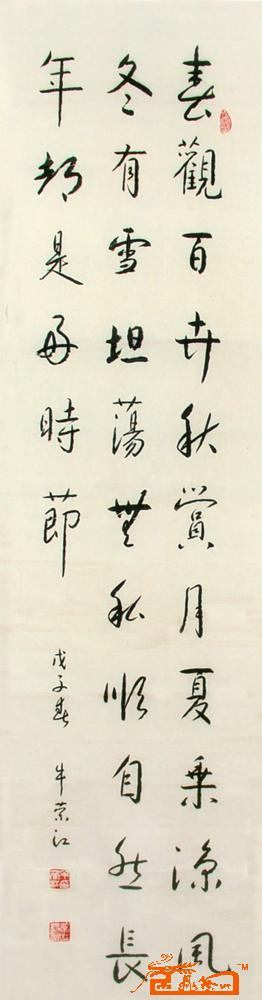 春觀百卉秋賞月夏乘涼風
冬有雪坦蕩無私順自然長
年都是好時節
戊子春 牛榮江